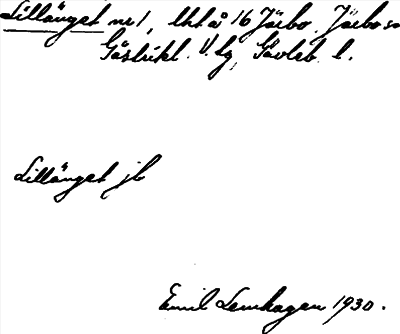 Lillänget nr 1, Järbo. Järbo sn
Gästrikl. V. lg, Gävleb. l.
Lillänget jb
Emil Lenhagen 1930.